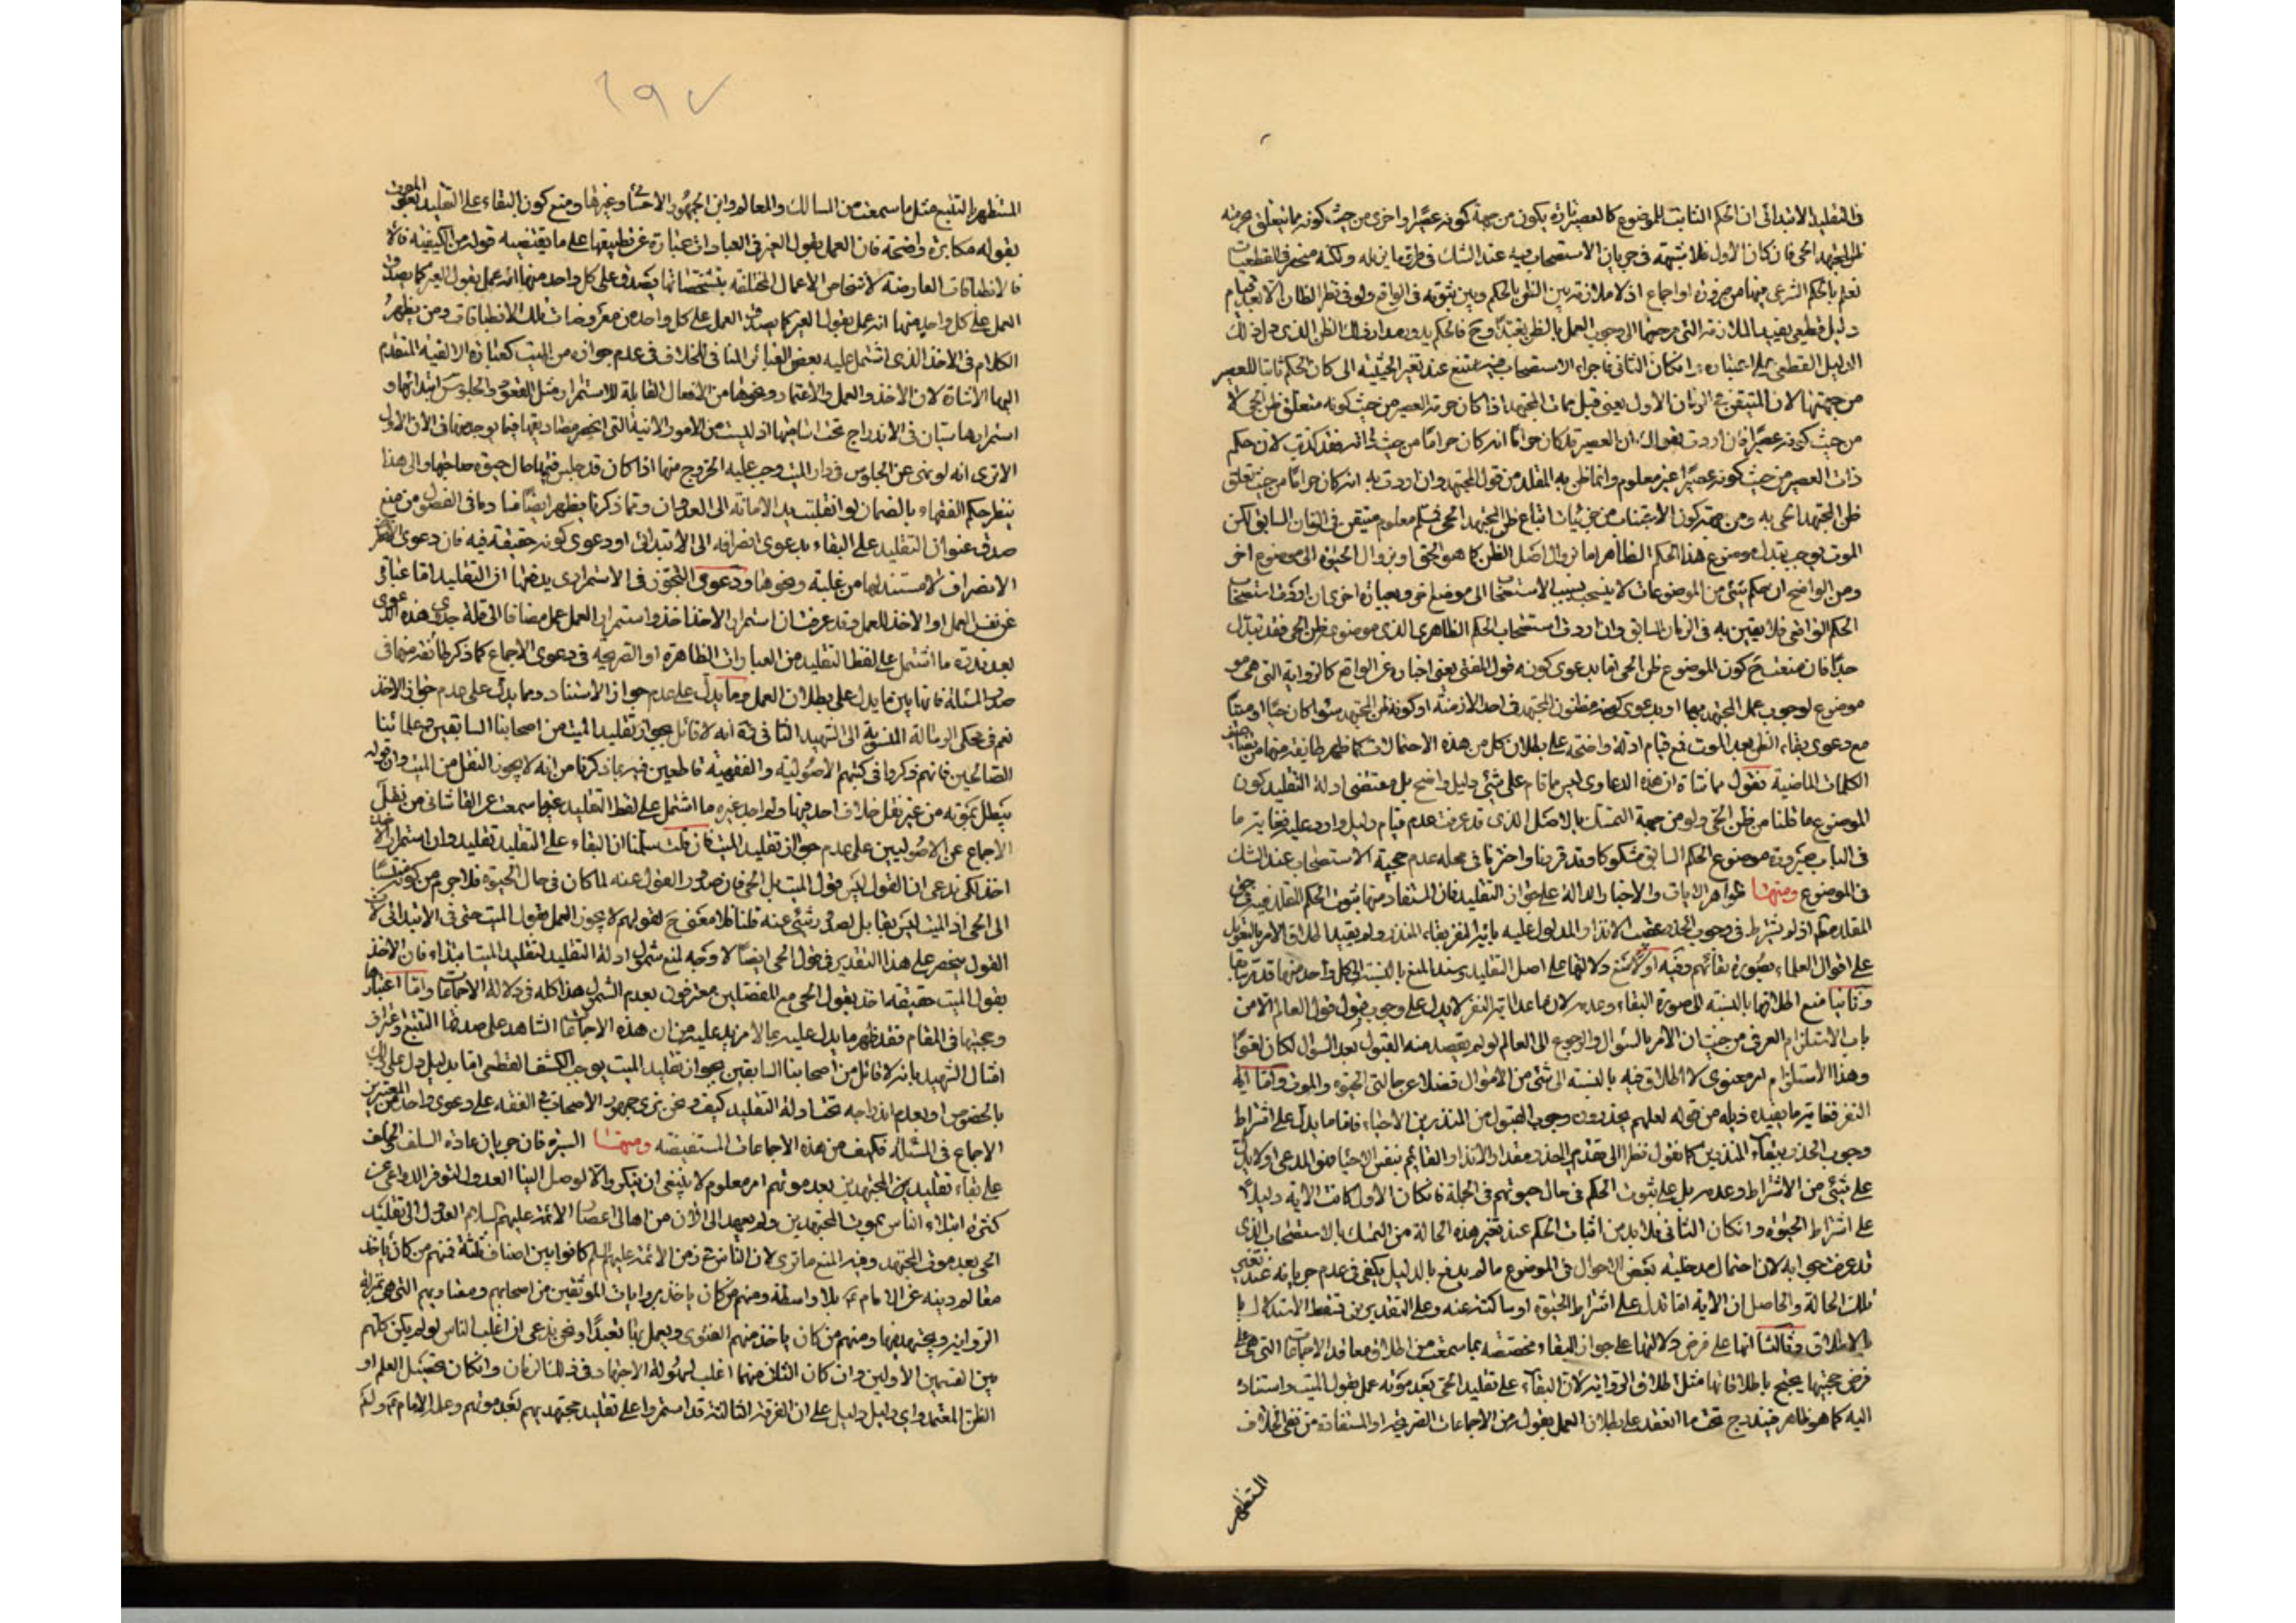 في التقليد الابتدائي ان الحكم الثابت للموضوع كالعصير تارة يكون من جهة كونه عصيرا واخرى من حيث كونه مما يتعلق بحرمته
ظن المجتهد الحي فان كان الاول فلا شبهة في جريان الاستصحاب فيه عند الشك في طرق ما يزيله ولكنه منحصر في القطعيات
نعلم بالحكم الشرعي فيها من ضرورة او اجماع اذ لا ملازمة بين الظن بالحكم وبين ثبوته في الواقع ولو في نظر الظان الا بعد قيام
دليل قطعي يفيد الملازمة التي مرجعها الى وجوب العمل بالظن تعبدا وح فالحكم يدور مدار ذلك الظن الذي دل ذلك
الدليل القطعي على اعتباره وان كان الثاني فاجراء الاستصحاب فيه ممتنع عند تغير الحيثية التي كان الحكم ثابتا للعصير
من جهتها لان المتيقن في الزمان الاول يعني قبل ممات المجتهد اذا كان حرمة العصير من حيث كونه متعلق ظن الحي لا
من حيث كونه عصيرا فان اردت بقولك ان العصير قد كان حراما انه كان حراما من حيث ذاته فقد كذبت لان حكم
ذات العصير من حيث كونه عصيرا غير معلوم وانما ظن به المقلد من قول المجتهد وان اردت به انه كان حراما من حيث تعلق
ظن المجتهد الحي به ومن جهة كون الاجتناب من جزئيات اتباع ظن المجتهد الحي فمسلم معلوم متيقن في الزمان السابق لكن
الموت يوجب تبدل موضوع هذا الحكم الظاهر اما بزوال اصل الظن كما هو الحق او بزوال الحيوة الى موضوع اخر
ومن الواضح ان حكم شيء من الموضوعات لا ينسحب بسبب الاستصحاب الى موضوع اخر وبعبارة اخرى ان اردت استصحاب
الحكم الواقعي فلا يقين به في الزمان السابق وان اردت استصحاب الحكم الظاهري الذي موضوعه ظن الحي فقد تبدل
جدا فان منعت ح كون الموضوع ظن الحي تقابد عوى كونه قول المفتي يعني اخباره عن الواقع كالرواية التي هي
موضوع لوجوب عمل المجتهد بها او بدعوى كونه مظنون المجتهد في احد الازمنة او كونه ظن المجتهد سواء كان حيا او ميتا
مع دعوى بقاء الظن بعد الموت فمع قيام ادلة واضحة على بطلان كل من هذه الاحتمالات كما ظهر طائفة منها من
الكلمات الماضية نقول مماشاة ان هذه الدعاوى ليس مما قام على شيء دليل واضح بل مقتضى ادلة التقليد كون
الموضوع ما قلنا من ظن الحي ولو من جهة التمسك بالاصل الذي قد عرفت عدم قيام دليل وارد عليه فغاية ما
في الباب صيرورة موضوع الحكم السابق مشكوكا وقد قررنا واخترنا في محله عدم حجية الاستصحاب عند الشك
في الموضوع ومنها ظواهر الايات والاخبار الدالة على جواز التقليد فان المستفاد منها ثبوت الحكم المقلد فيه في حق
المقلد مطلقا اذ لم يشترط في وجوب الحذر عقيب الانذار المدلول عليه باية النفر بقاء المنذر ولم يقيد اطلاق الامر بالتعويل
على اقوال العلماء بصورة بقائهم وفيه اولا منع دلالتها على اصل التقليد وسند المنع بالنسبة الى كل واحد منها قد مر سابقا
وثانيا منع اطلاقها بالنسبة الى صورة البقاء وعدمه لان ما عدا اية النفر لا يدل على وجوب قبول قول العالم الا من
باب الاستلزام العرفي من حيث ان الامر بالسؤال والرجوع الى العالم لو لم يقصد منه القبول بعد السؤال لكان لغوا
وهذا الاستلزام امر معنوي لا اطلاق فيه بالنسبة الى شيء من الاحوال فضلا عن حالتي الحيوة والموت واما اية
النفر فغاية ما يفيده ذيله من قوله لعلهم يحذرون وجوب القبول من المنذرين الاحياء فاما ما يدل على اشتراط
وجوب الحذر ببقاء المنذرين كما نقول نظرا الى الحذر مقدار الانذار القائم بنفس الاحياء فهو المدعى او لا يدل
على شيء من الاشتراط وعدمه بل على ثبوت الحكم في حال حيوتهم في الجملة فان كان الاول كانت الاية دليلا
على اشتراط الحيوة وان كان الثاني فلا بد من اثبات الحكم عند تغير هذه الحالة من التمسك بالاستصحاب الذي
قد عرفت حاله لان احتمال مدخلية بعض الاحوال في الموضوع ما لم يدفع بالدليل يكفي في عدم جريانه عند تغير
تلك الحالة والحاصل ان الاية اما تدل على اشتراط الحيوة او ساكتة عنه وعلى التقديرين فسقط الاستدلال
بالاطلاق وثالثا انها على فرض دلالتها على جواز البقاء مخصصة بما سمعت من اطلاق معاقد الاجماعات التي هي على
فرض حجيتها يحتج باطلاقاتها مثل اطلاق الرواية لان البقاء على تقليد الحي بعد موته عمل بقول الميت واستناد
اليه كما هو ظاهر فيندرج تحت ما انعقد على بطلان العمل بقوله من الاجماعات الصريحة او المستفادة من نفي الخلاف
المستظهر
١٩٧
المستظهر بالتتبع مثل ما سمعت من المسالك والمعالم وابن الجمهور الاحسائي وغيرها ومنع كون البقاء على التقليد بعد الموت
بقوله مكابرة واضحة فان العمل بقول الغير في العبادات عبارة عن تطبيقها على ما يقتضيه قوله من الكيفية
فالانطباقات العارضة لاشخاص الاعمال المختلفة بتشخصاتها يصدق على كل واحد منها انه عمل بقول الغير كما يصدق
العمل على كل واحد منها انه عمل بقول الغير كما يصدق العمل على كل واحد من معروضات تلك الانطباقات ومن يظهر
الكلام في الاخذ الذي اشتمل عليه بعض العبائر النافي للخلاف في عدم جوازه من الميت كعبارة الالفية المتقدم
اليها الاشارة لان الاخذ والعمل والاعتماد ونحوها من الافعال القابلة للاستمرار مثل القعود والجلوس ابتدائها و
استمرارها سيان في الاندراج تحت اساميها اذ ليست من الامور الانية التي انحصر مصاديقها فيما يوجد منها في الان الاول
الا ترى انه لو نهى عن الجلوس في دار الميت وجب عليه الخروج منها اذا كان قد جلس فيها حال حيوة صاحبها والى هذا
ينظر حكم الفقهاء بالضمان لو انقلبت يد الامانة الى العدوان ومما ذكرنا يظهر ايضا ما في الفصول من منع
صدق عنوان التقليد على البقاء بدعوى انصرافه الى الابتدائي او دعوى كونه حقيقة فيه فان دعوى
الانصراف لا مستند لها من غلبة ونحوها ودعوى التجوز في الاستمراري يدفعها ان التقليد اما عبارة
عن نفس العمل او الاخذ للعمل وقد عرفت ان استمرار الاخذ اخذ واستمرار العمل عمل مضافا الى قلة جدوى هذه الدعوى
بعد ندرة ما اشتمل على لفظ التقليد من العبارات الظاهرة او الصريحة في دعوى الاجماع كما ذكر طائفة منها في
صدر المسئلة فانها بين ما يدل على بطلان العمل وما يدل على عدم جواز الاستناد وما يدل على عدم جواز الاخذ
نعم في محكي الرسالة المنسوبة الى الشهيد الثاني ره انه لا قائل بجواز تقليد الميت من اصحابنا السابقين وعلمائنا
الصالحين فانهم ذكروا في كتبهم الاصولية والفقهية قاطعين فيه بما ذكرنا من انه لا يجوز النقل من الميت وان قوله
يبطل بموته من غير نقل خلاف احد فيها ولم اجد غيره ما اشتمل على لفظ التقليد غير ما سمعت عن القاشاني من نقل
الاجماع عن الاصوليين على عدم جواز تقليد الميت فان قلت سلمنا ان البقاء على التقليد تقليد وان استمرار الاخذ
اخذ لكن ندعي ان القول ليس قول الميت بل الحي فان صدور القول عنه لما كان في حال الحيوة فلا جرم من كونه منتسبا
الى الحي اذ الميت ليس بقابل لصدور شيء عنه قلنا فلا معنى ح لقولهم لا يجوز العمل بقول الميت حتى في الابتدائي لان
القول ينحصر على هذا التقدير في قول الحي ايضا لا وجه لمنع شمول ادلة التقليد لتقليد الميت ابتداء فان الاخذ
بقول الميت حقيقة اخذ بقول الحي مع المفصلين معترفون بعدم الشمول هذا كله في دلالة الاجماعات واما اعتبارها
وحجيتها في المقام فقد ظهر ما يدل عليه بما لا مزيد عليه من ان هذه الاجماعات الشاهد على صدقها التتبع واعتراف
امثال الشهيد بانه لا قائل من اصحابنا السابقين بجواز تقليد الميت يوجب الكشف القطعي اما بدليل دل على ذلك
بالخصوص او بعدم اندراجه تحت ادلة التقليد كيف ونحن نرى جمهور الاصحاب في الفقه على دعوى واحد من المعتبرين
الاجماع في المسئلة فكيف من هذه الاجماعات المستفيضة ومنها السيرة فان جريان عادة السلف والخلف
على بقاء تقليد المجتهدين بعد موتهم امر معلوم لا ينبغي ان ينكر والا لوصل الينا العدول لتوفر الدواعي عن
كثرة ابتلاء الناس بموت المجتهدين ولم يعهد الى الان من اهالي اعصار الائمة عليهم السلام العدول الى تقليد
الحي بعد موت المجتهد وفيه المنع ما ترى لان الناس في زمن الائمة عليهم السلام كانوا بين اصناف ثلثة فمنهم من كان ياخذ
معالم دينه عن الامام ع بلا واسطة ومنهم من كان ياخذ بروايات الموثقين من اصحابهم ومفتاويهم التي هي بمنزلة
الرواية ويجتهد فيها ومنهم من كان ياخذ منهم الفتوى ويعمل بها تعبدا ونحن ندعي ان اغلب الناس لو لم يكن كلهم
من القسمين الاولين وان كان الثاني منهما اغلب لسهولة الاجتهاد في ذلك الزمان وامكان تحصيل العلم او
الظن المعتمد واي دليل دليل على ان الفرقة الثالثة قد استمروا على تقليد مجتهديهم بعد موتهم وعلم الامام ع ولم